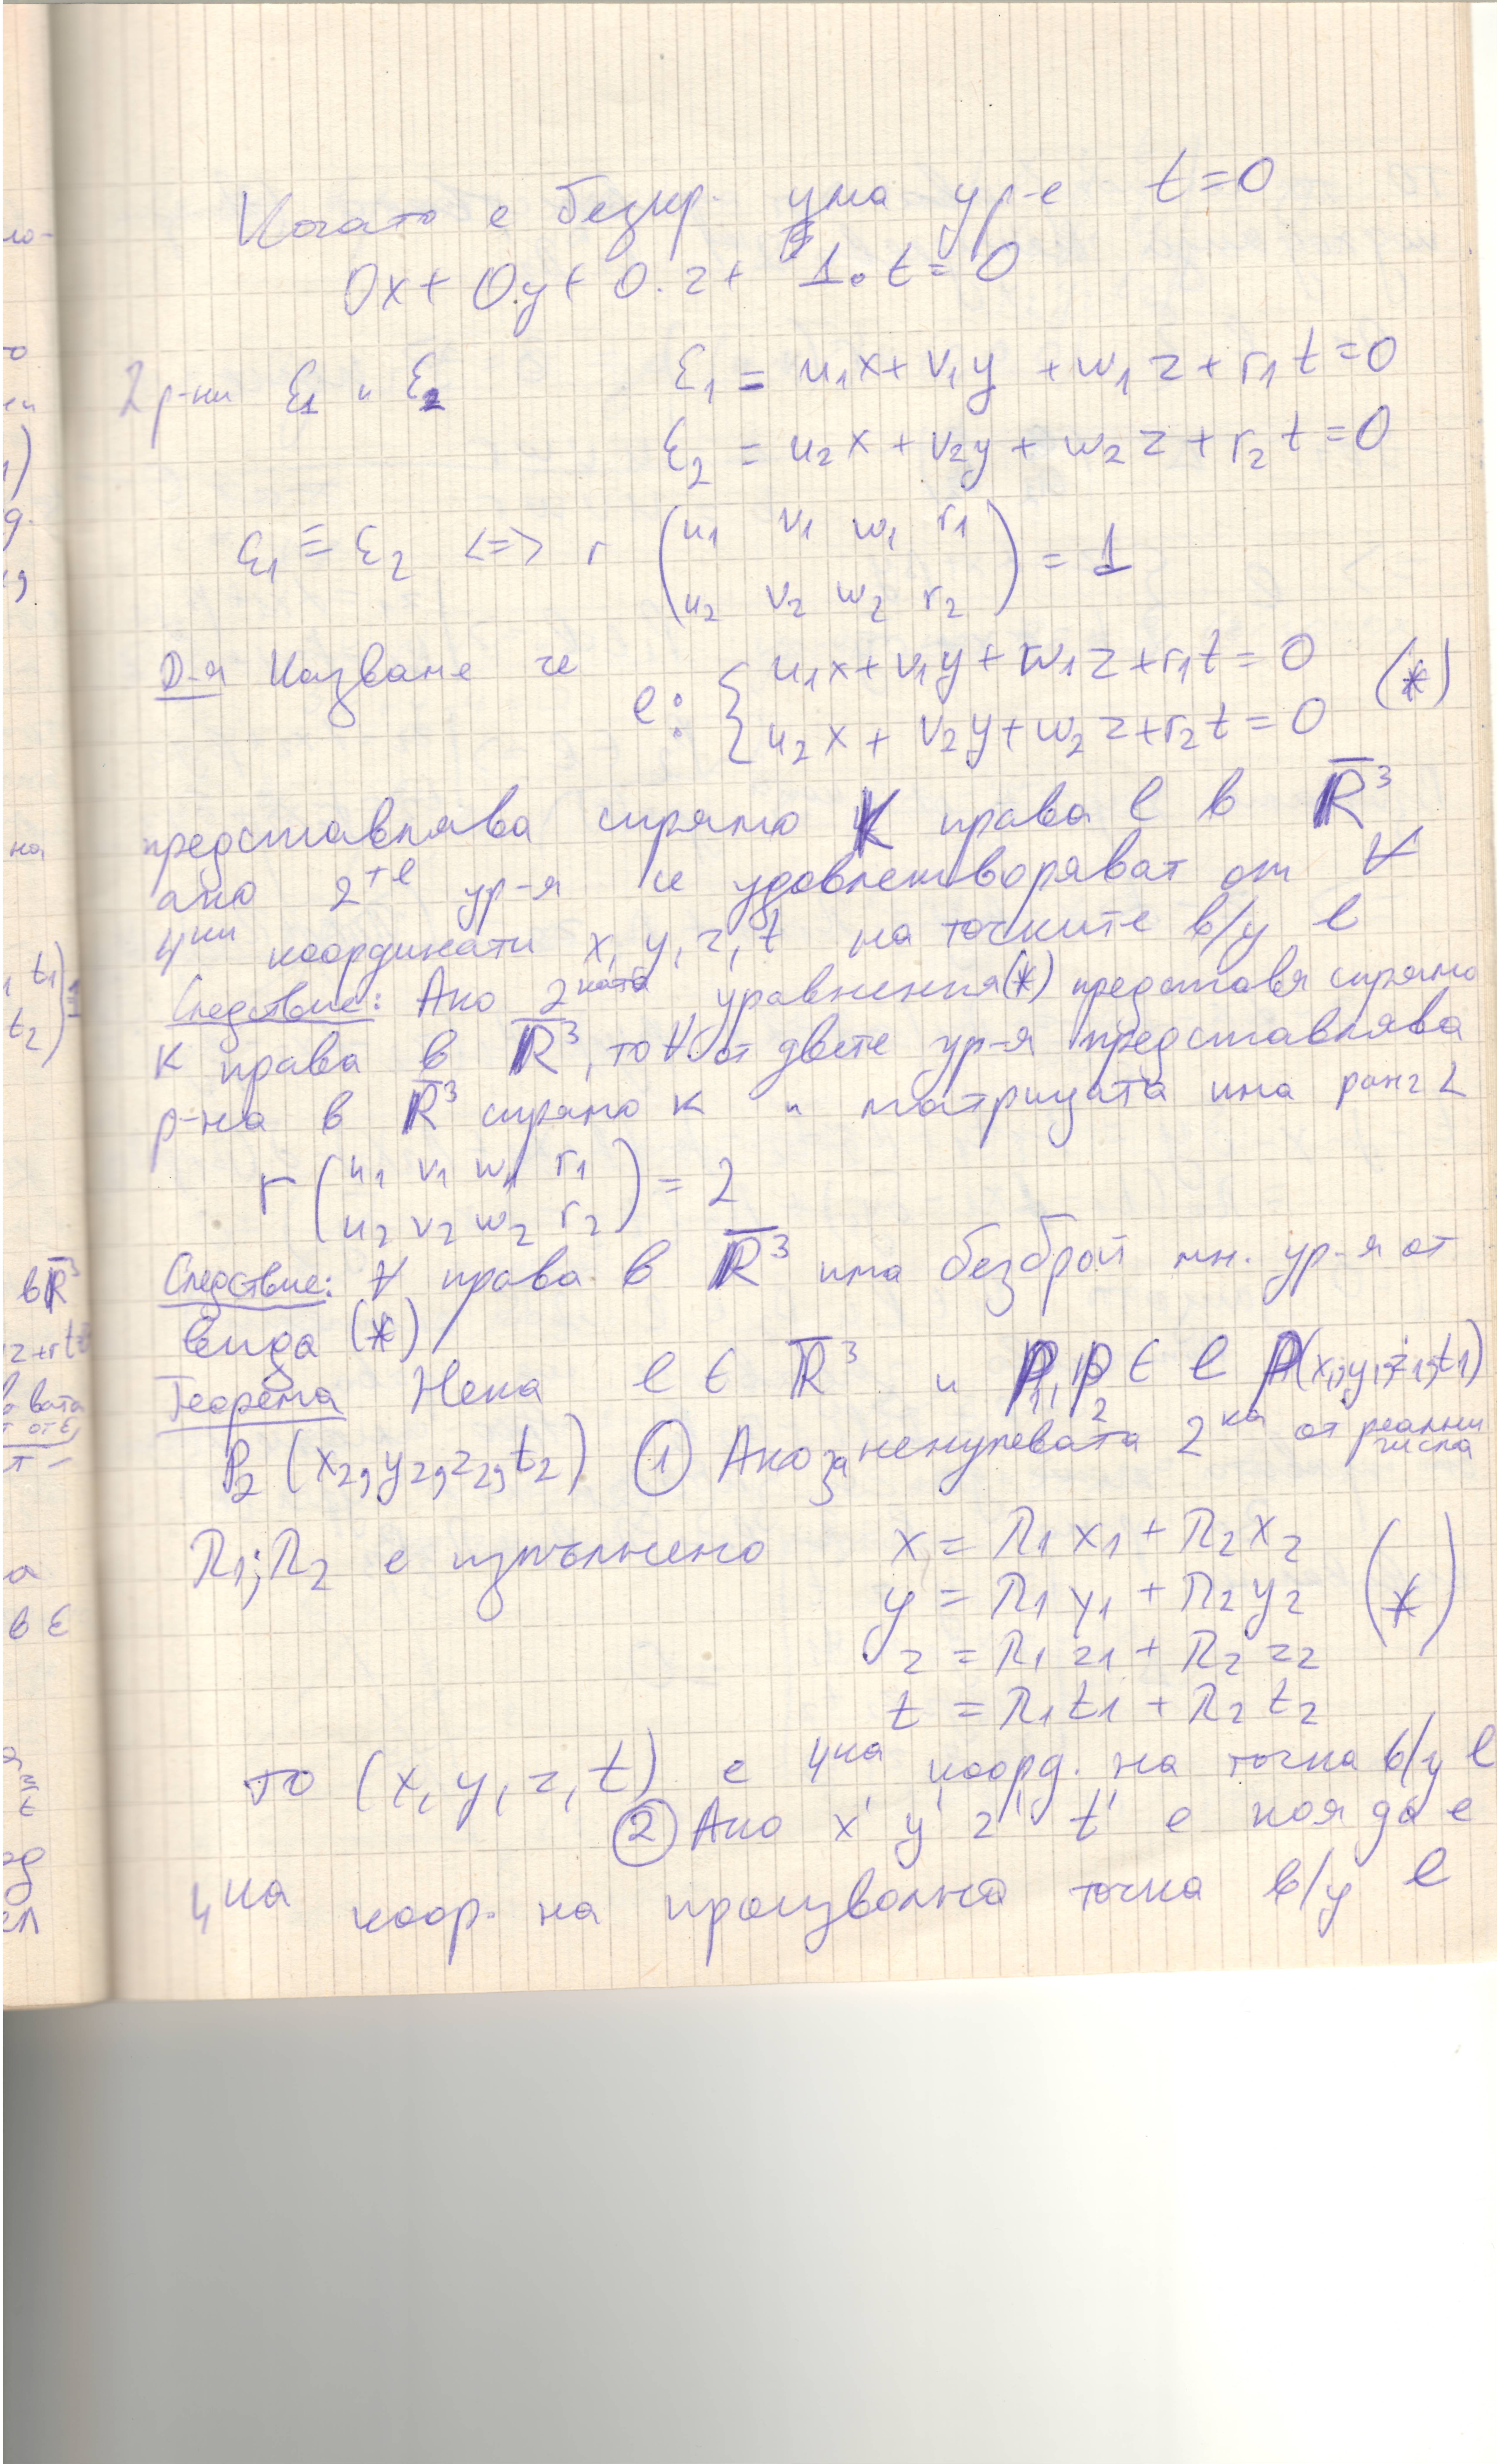 Когато е безкр. има ур-е t=0
0x + 0.y + 0.z + 1.t = 0
2 р-ни ε1 и ε2 ε1 = u1x + v1y + w1z + r1t = 0
ε2 = u2x + v2y + w2z + r2t = 0
ε1 ≡ ε2 <=> r (u1 v1 w1 r1
u2 v2 w2 r2) = 1
Д-я Казваме че
l: { u1x + v1y + w1z + r1t = 0
u2x + v2y + w2z + r2t = 0 (*)
представлява спрямо K права l в R̅³
ако 2те ур-я се удовлетворяват от ∀
4ки координати x, y, z, t на точките в/у l
Следствие: Ако 2ката уравнения (*) представя спрямо
K права в R̅³, то ∀ от двете ур-я представлява
р-на в R̅³ спрямо K и матрицата има ранг 2
r (u1 v1 w1 r1
u2 v2 w2 r2) = 2
Следствие: ∀ права в R̅³ има безброй мн. ур-я от
вида (*)
Теорема Нека l ∈ R̅³ и P1, P2 ∈ l P1(x1, y1, z1, t1)
P2 (x2, y2, z2, t2) ① Ако за ненулевата 2ка от реални числа
λ1; λ2 е изпълнено x = λ1x1 + λ2x2
y = λ1y1 + λ2y2 (*)
z = λ1z1 + λ2z2
t = λ1t1 + λ2t2
то (x, y, z, t) е 4ка коорд. на точка в/у l
② Ако x' y' z' t' е коя да е
4ка коор. на произволна точка в/у l